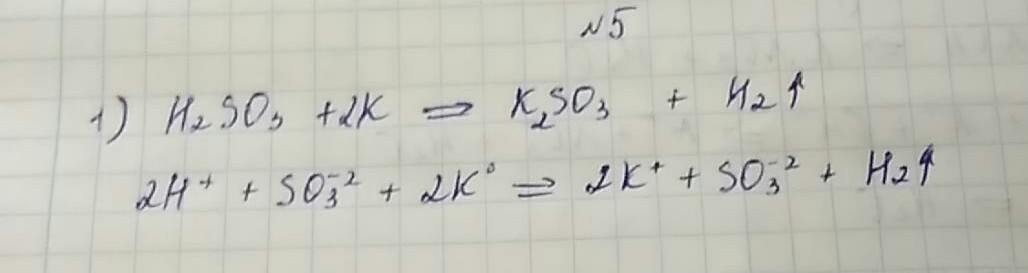 №5
1) H₂SO₃ + 2K = K₂SO₃ + H₂↑
2H⁺ + SO₃⁻² + 2K⁰ = 2K⁺ + SO₃⁻² + H₂↑